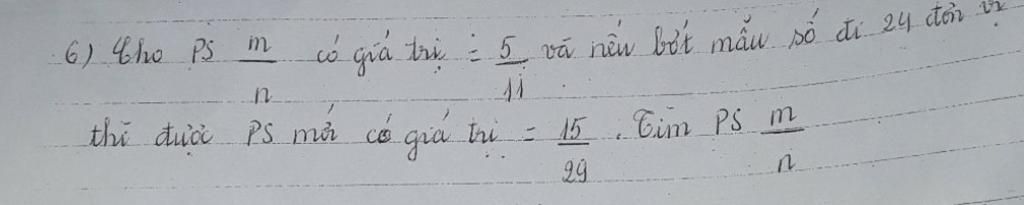 6) Cho PS m/n có giá trị = 5/11 và nếu bớt mẫu số đi 24 đơn vị
thì được PS mới có giá trị = 15/29. Tìm PS m/n